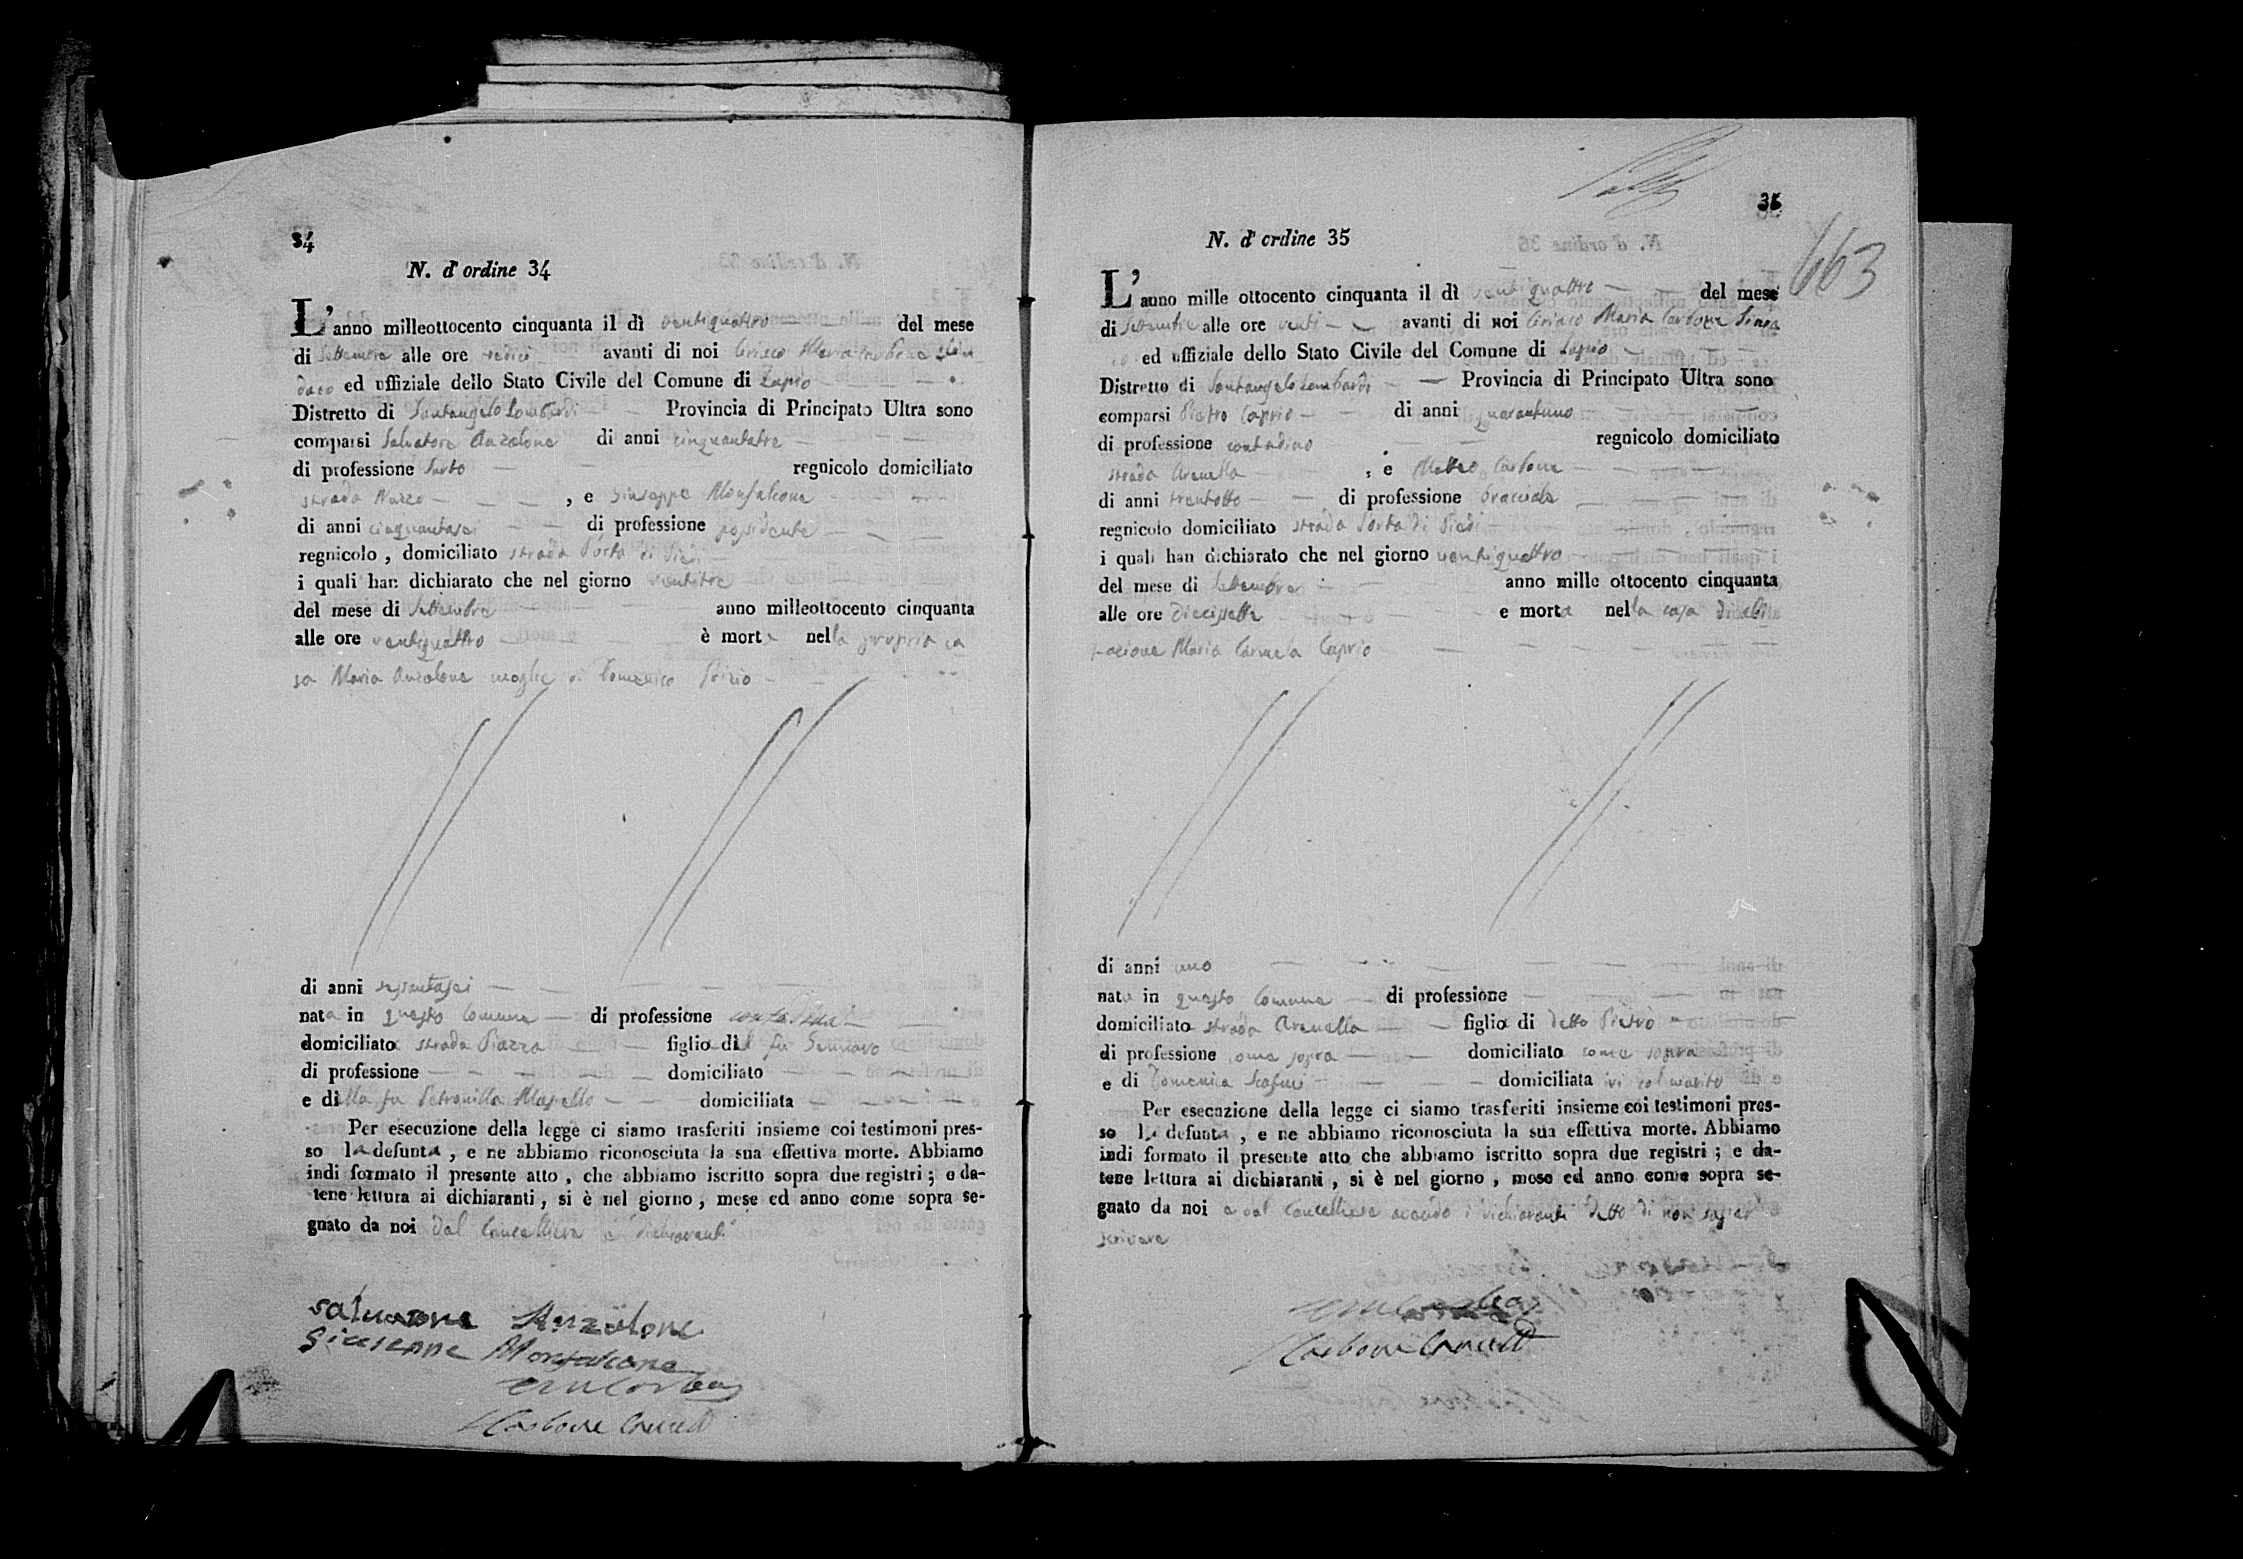 34
N. d' ordine 34
L'anno milleottocento cinquanta il dì ventiquattro del mese
di Settembre alle ore sedici avanti di noi Ciriaco Maria Carbone Sin
daco ed uffiziale dello Stato Civile del Comune di Lapio
Distretto di Santangelo Lombardi Provincia di Principato Ultra sono
comparsi Salvatore Anzalone di anni cinquantatre
di professione Sarto regnicolo domiciliato
strada , e Giuseppe Monfalcone
di anni cinquantasei di professione possidente
regnicolo , domiciliato strada Porta di Piedi
i quali han dichiarato che nel giorno ventitre
del mese di Settembre anno milleottocento cinquanta
alle ore ventiquattro è morta nella propria ca
sa Maria Anzalone moglie di Domenico
di anni
nata in questo Comune di professione contadina
domiciliata strada Piazza figlia del fu Gennaro
di professione domiciliato
e della fu Petronilla domiciliata
Per esecuzione della legge ci siamo trasferiti insieme coi testimoni pres-
so la defunta , e ne abbiamo riconosciuta la sua effettiva morte. Abbiamo
indi formato il presente atto , che abbiamo iscritto sopra due registri ; e da-
tene lettura ai dichiaranti , si è nel giorno , mese ed anno come sopra se-
gnato da noi dal Cancelliere e dichiaranti
Salvatore Anzalone
Giuseppe Monfalcone
Carbone Cancell
35
663
N. d' ordine 35
L'anno mille ottocento cinquanta il dì ventiquattro del mese
di Settembre alle ore venti avanti di noi Ciriaco Maria Carbone Sinda
co ed uffiziale dello Stato Civile del Comune di Lapio
Distretto di Santangelo Lombardi Provincia di Principato Ultra sono
comparsi Pietro Caprio di anni quarantuno
di professione contadino regnicolo domiciliato
strada Arenella , e Matteo Carbone
di anni trentotto di professione bracciale
regnicolo domiciliato strada Porta di Piedi
i quali han dichiarato che nel giorno ventiquattro
del mese di Settembre anno mille ottocento cinquanta
alle ore diecisette e morta nella casa di abi
tazione Maria Carmela Caprio
di anni uno
nata in questo Comune di professione
domiciliata strada Arenella figlia di detto Pietro
di professione come sopra domiciliato come sopra
e di Domenica domiciliata ivi col marito
Per esecuzione della legge ci siamo trasferiti insieme coi testimoni pres-
so la defunta , e ne abbiamo riconosciuta la sua effettiva morte. Abbiamo
indi formato il presente atto che abbiamo iscritto sopra due registri ; e da-
tene lettura ai dichiaranti , si è nel giorno , mese ed anno come sopra se-
gnato da noi e dal Cancelliere avendo i dichiaranti detto di non saper
scrivere
Carbone Cancell